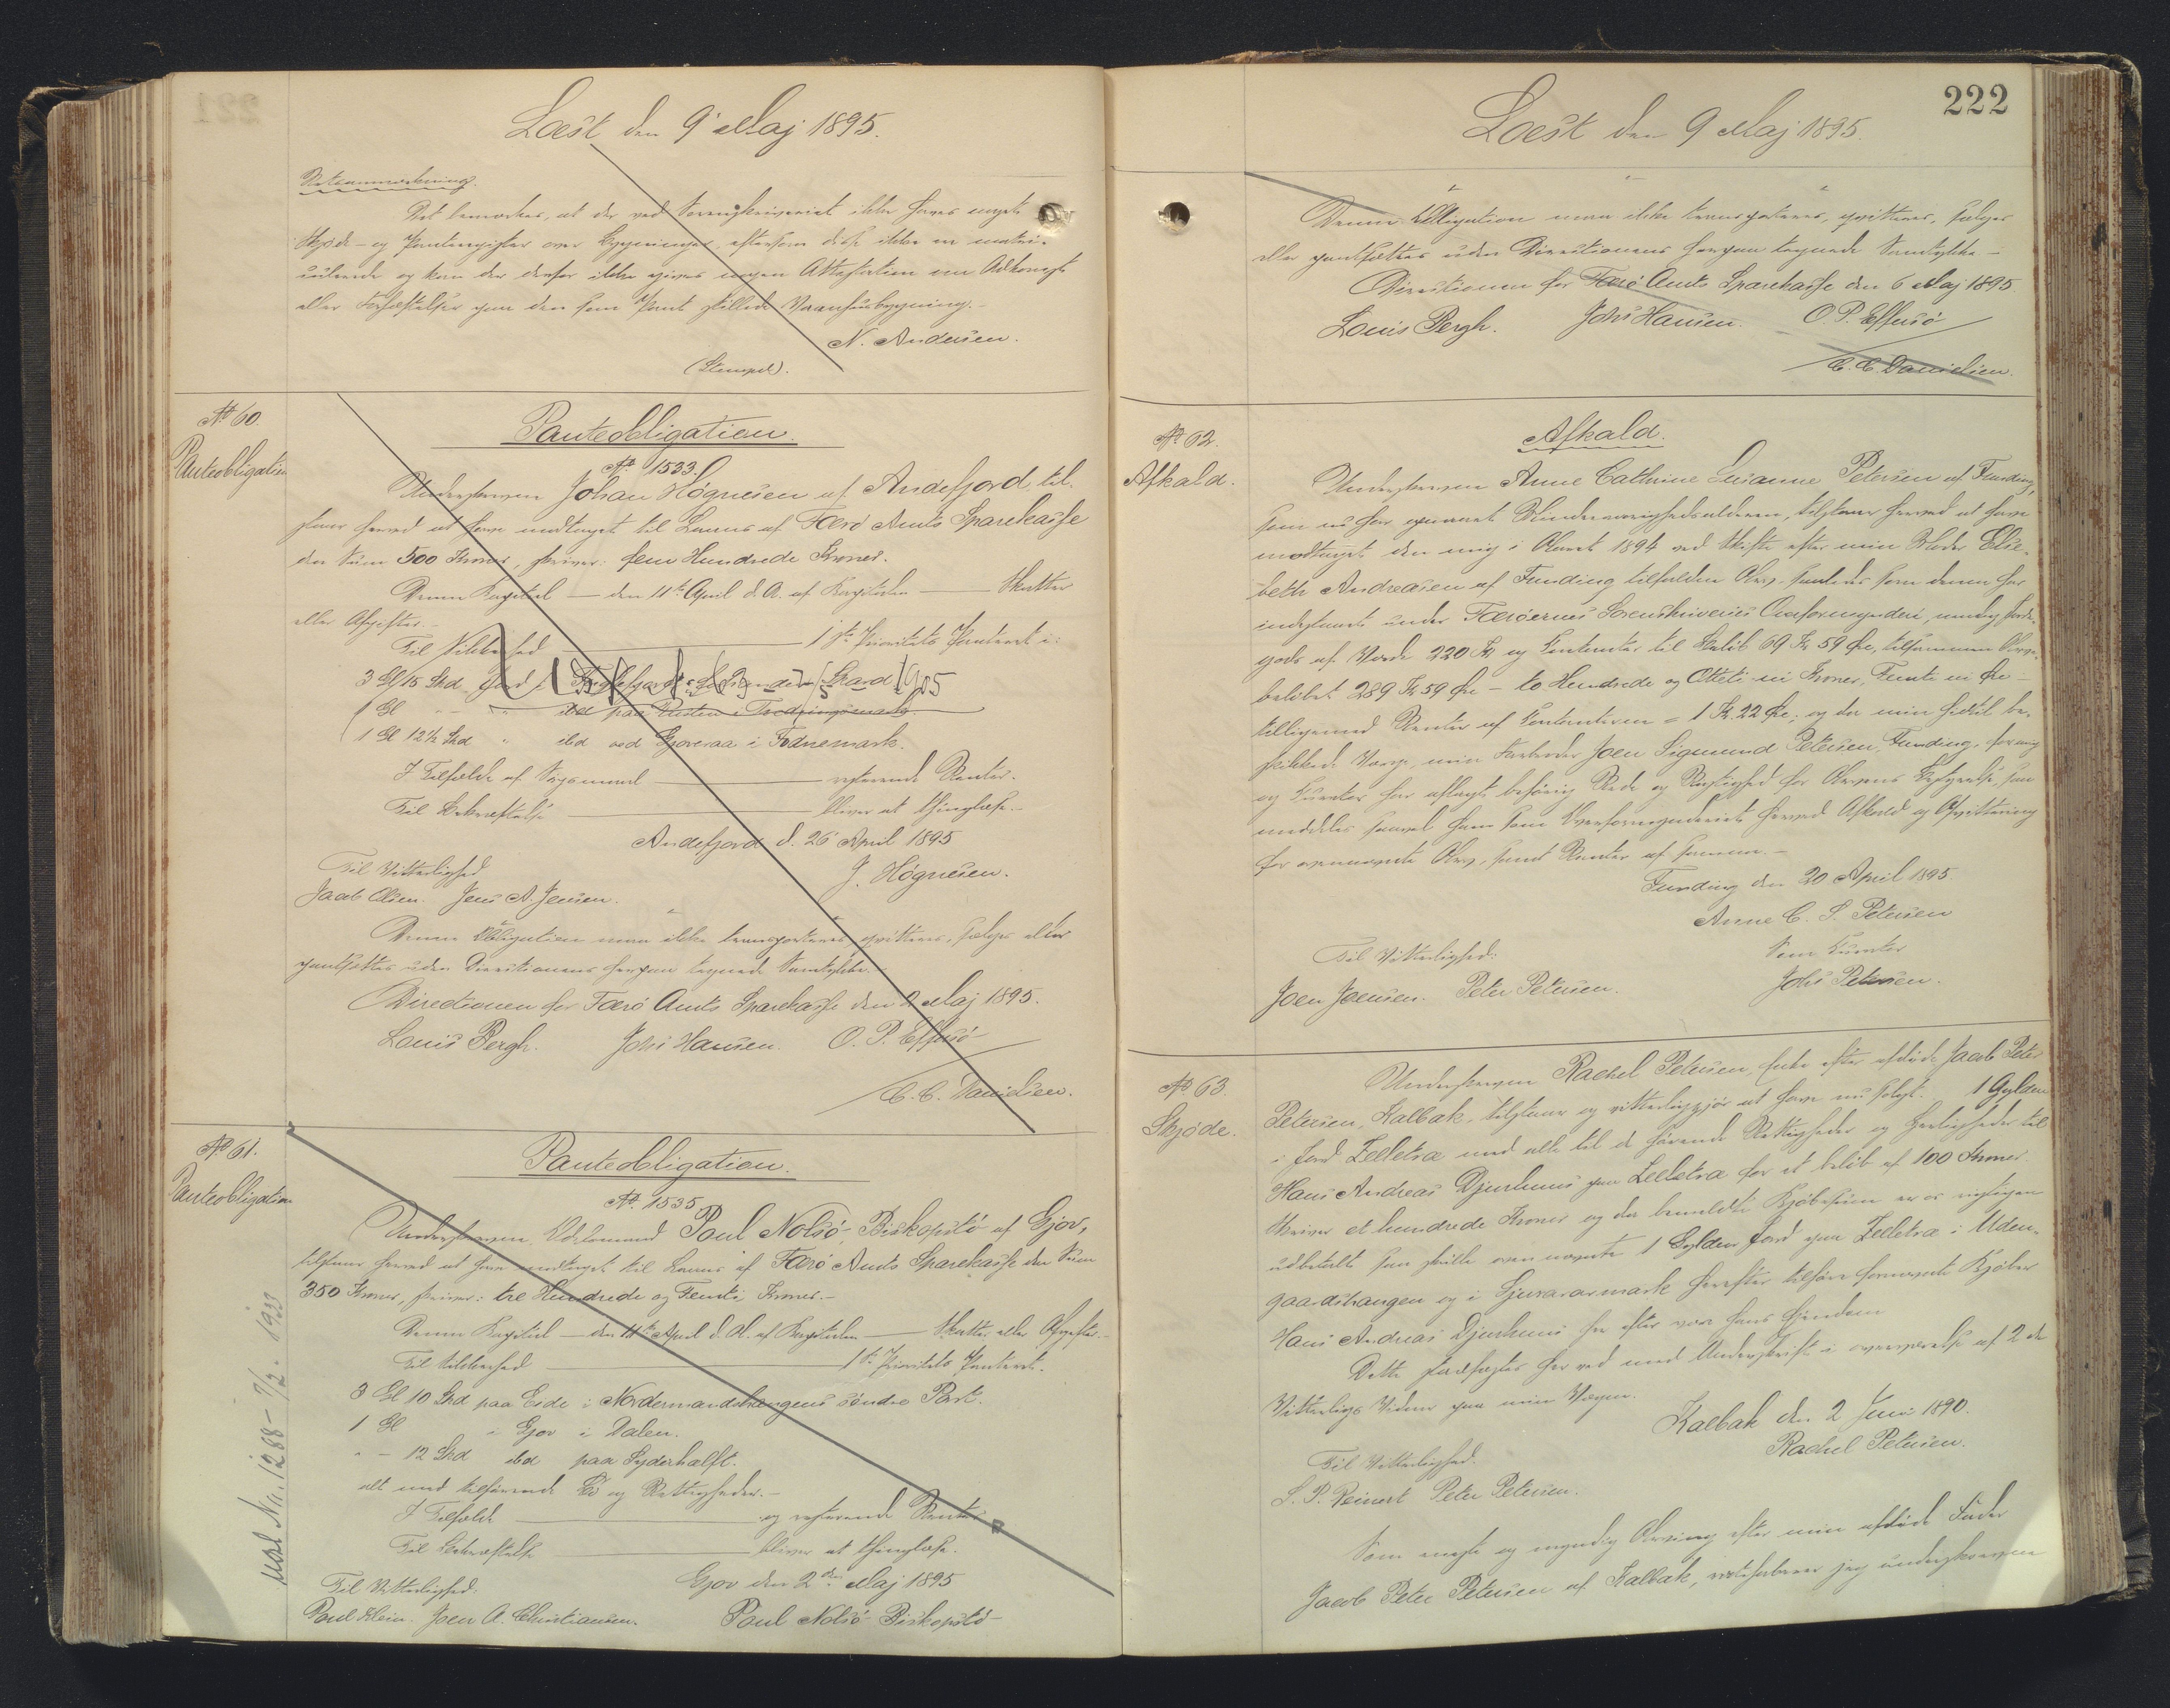 Læst den 9' Maj 1895.
Retsanmærkning.
Det bemærkes, at der ved Sorenskriveriet ikke haves noget
Skjøde- og Panteregister over Bygninger, eftersom disse ikke ere matri-
culerede og kan der derfor ikke gives nogen Attestation om Adkomst
eller Forhæftelser paa den som Pant stillede Vaaningsbygning.-
N. Andersen.
(Stempel).
No 60.
Panteobligation
Panteobligation.
No 1533.
Underskrevne Johan Høgnesen af Andefjord, til-
staar herved at have modtaget til Laans af Færø Amts Sparekasse
den Sum 500 Kroner, skriver: fem Hundrede Kroner.
Denne Kapital — den 11te April d. A. af Kapitalen — Skatter
eller Afgifter.-
Til Sikkerhed — 1ste Prioritets Panteret i:
3 Gl 15 Skd Jord i
1 Gl " ibd paa
1 Gl 12½ Skd " ibd ved Gjoveraa i Fodnemark.
I Tilfælde af Søgsmaal — resterende Renter.
Til Bekræftelse — bliver at thinglæse.-
Andefjord d. 26 April 1895
Til Vitterlighed
J. Høgnesen.
Jacob Olsen. Jens A. Jensen.
Denne Obligation maa ikke transporteres, qvitteres, sælges eller
pantsættes uden Directionens herpaa tegnede Samtykke.-
Directionen for Færø Amts Sparekasse den 2 Maj 1895.
Louis Bergh. Johs Hansen. O. P. Effersö
C. C. Danielsen.
No 61.
Panteobligation
Panteobligation.
No 1535
Underskrevne Odelsmand Poul Nolsö-Biskopstö af Gjov,
tilstaar herved at have modtaget til Laans af Færø Amts Sparekasse den Sum
350 Kroner, skriver: tre Hundrede og Femti Kroner.-
Denne Kapital — den 11te April d. A. af Kapitalen — Skatter eller Afgifter.-
Til Sikkerhed — 1ste Prioritets Panteret.
3 Gl 10 Skd paa Eide i Nordermandshaugens söndre Part.
1 Gl " Gjov i Dalen.
" - 12 Skd ibd paa Syderhalft.
alt med tilhørende og Rettigheder.-
I Tilfælde — og resterende Renter
Til Bekræftelse — bliver at thinglæse.
Gjov den 2den Maj 1895
Til Vitterlighed.
Poul Klein. Joen A. Christiansen. Poul Nolsö-Biskopstö-
No. 1288 - 7/2. 1933
222
Læst den 9 Maj 1895.
Denne Obligation maa ikke transporteres, qvitteres, sælges
eller pantsættes uden Directionens herpaa tegnede Samtykke -
Directionen for Færø Amts Sparekasse den 6 Maj 1895
Louis Bergh. Johs Hansen. O. P. Effersö
C. C. Danielsen.
No 62.
Afkald.
Afkald.
Underskrevne Anne Cathrine Susanne Petersen af Funding,
som nu har opnaaet Mindreaarighedsalderen, tilstaar herved at have
modtaget den mig i Aaret 1894 ved Skifte efter min Moder Else-
beth Andreasen af Funding tilfaldne Arv, saaledes som denne har
indestaaet under Færöernes Sorenskriveries Overformynderi, nemlig Jorde-
gods af Værdi 220 Kr og Contanter til Beløb 69 Kr 59 Øre, tilsammen Arve-
beløbet 289 Kr 59 Øre - to Hundrede og Otteti ni Kroner, Femti ni Øre -
tilligemed Renter af Contanterne = 1 Kr. 22 Øre; og da min hidtil be-
skikkede Værge, min Farbroder Joen Sigmund Petersen, Funding, for mig
og Curator har aflagt behørig Rede og Rigtighed for Arvens Bestyrelse, saa
meddeles saavel ham som Overformynderiet herved Afkald og Afqvittering
for ovennævnte Arv, samt Renter af samme.-
Funding den 20 April 1895
Anne C. S. Petersen
Til Vitterlighed. Som Curator
Joen Joensen. Peter Petersen. Johs Petersen.
No 63.
Skjøde.
Underskrevne Rachel Petersen, Enke efter afdøde Jacob Peter
Petersen, Kalbak, tilstaar og vitterliggjör at have nu solgt 1 Gylden
i Jord Zelletræ med alle til d hörende Rettigheder og Herligheder til
Hans Andreas Djurhuus paa Zelletræ for et belöb af 100 Kroner
skriver et hundrede Kroner og da bemeldte Kjøbesum er os rigtigen
udbetalt saa skulle ovennævnte 1 Gylden Jord paa Zelletræ i Uden-
gaardshaugen og i Gjuvaramark herefter tilhøre fornævnte Kjøber
Hans Andreas Djurhuus fra efter vor Haus Eiendom
Dette stadfæstes herved med Underskrift i overværelse af 2de
Vitterligs Vidner paa min Vægne.
Kalbak den 2 Juni 1890.
Rachel Petersen.
Til Vitterlighed.
S. P. Reinert Peter Petersen.
Som eneste og myndig Arving efter min afdøde Fader
Jacob Peter Petersen af Kalbak, ratihaberer jeg underskrevne